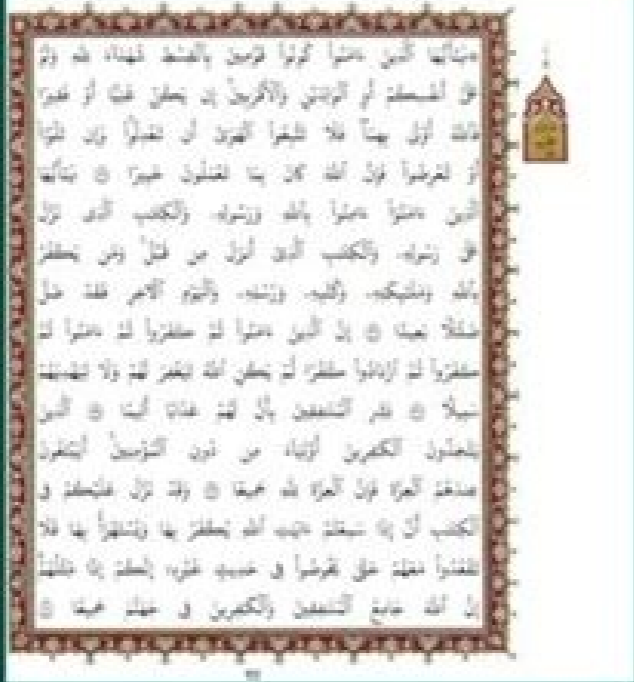 ۞يَٰٓأَيُّهَا ٱلَّذِينَ ءَامَنُوا۟ كُونُوا۟ قَوَّٰمِينَ بِٱلْقِسْطِ شُهَدَآءَ لِلَّهِ وَلَوْ
عَلَىٰٓ أَنفُسِكُمْ أَوِ ٱلْوَٰلِدَيْنِ وَٱلْأَقْرَبِينَ إِن يَكُنْ غَنِيًّا أَوْ فَقِيرًا
فَٱللَّهُ أَوْلَىٰ بِهِمَا فَلَا تَتَّبِعُوا۟ ٱلْهَوَىٰٓ أَن تَعْدِلُوا۟ وَإِن تَلْوُۥٓا۟
أَوْ تُعْرِضُوا۟ فَإِنَّ ٱللَّهَ كَانَ بِمَا تَعْمَلُونَ خَبِيرًا ۝ يَٰٓأَيُّهَا
ٱلَّذِينَ ءَامَنُوٓا۟ ءَامِنُوا۟ بِٱللَّهِ وَرَسُولِهِۦ وَٱلْكِتَٰبِ ٱلَّذِى نَزَّلَ
عَلَىٰ رَسُولِهِۦ وَٱلْكِتَٰبِ ٱلَّذِىٓ أَنزَلَ مِن قَبْلُ وَمَن يَكْفُرْ
بِٱللَّهِ وَمَلَٰٓئِكَتِهِۦ وَكُتُبِهِۦ وَرُسُلِهِۦ وَٱلْيَوْمِ ٱلْءَاخِرِ فَقَدْ ضَلَّ
ضَلَٰلًۢا بَعِيدًا ۝ إِنَّ ٱلَّذِينَ ءَامَنُوا۟ ثُمَّ كَفَرُوا۟ ثُمَّ ءَامَنُوا۟ ثُمَّ
كَفَرُوا۟ ثُمَّ ٱزْدَادُوا۟ كُفْرًا لَّمْ يَكُنِ ٱللَّهُ لِيَغْفِرَ لَهُمْ وَلَا لِيَهْدِيَهُمْ
سَبِيلًۢا ۝ بَشِّرِ ٱلْمُنَٰفِقِينَ بِأَنَّ لَهُمْ عَذَابًا أَلِيمًا ۝ ٱلَّذِينَ
يَتَّخِذُونَ ٱلْكَٰفِرِينَ أَوْلِيَآءَ مِن دُونِ ٱلْمُؤْمِنِينَ أَيَبْتَغُونَ
عِندَهُمُ ٱلْعِزَّةَ فَإِنَّ ٱلْعِزَّةَ لِلَّهِ جَمِيعًا ۝ وَقَدْ نَزَّلَ عَلَيْكُمْ فِى
ٱلْكِتَٰبِ أَنْ إِذَا سَمِعْتُمْ ءَايَٰتِ ٱللَّهِ يُكْفَرُ بِهَا وَيُسْتَهْزَأُ بِهَا فَلَا
تَقْعُدُوا۟ مَعَهُمْ حَتَّىٰ يَخُوضُوا۟ فِى حَدِيثٍ غَيْرِهِۦٓ إِنَّكُمْ إِذًا مِّثْلُهُمْ
إِنَّ ٱللَّهَ جَامِعُ ٱلْمُنَٰفِقِينَ وَٱلْكَٰفِرِينَ فِى جَهَنَّمَ جَمِيعًا ۝